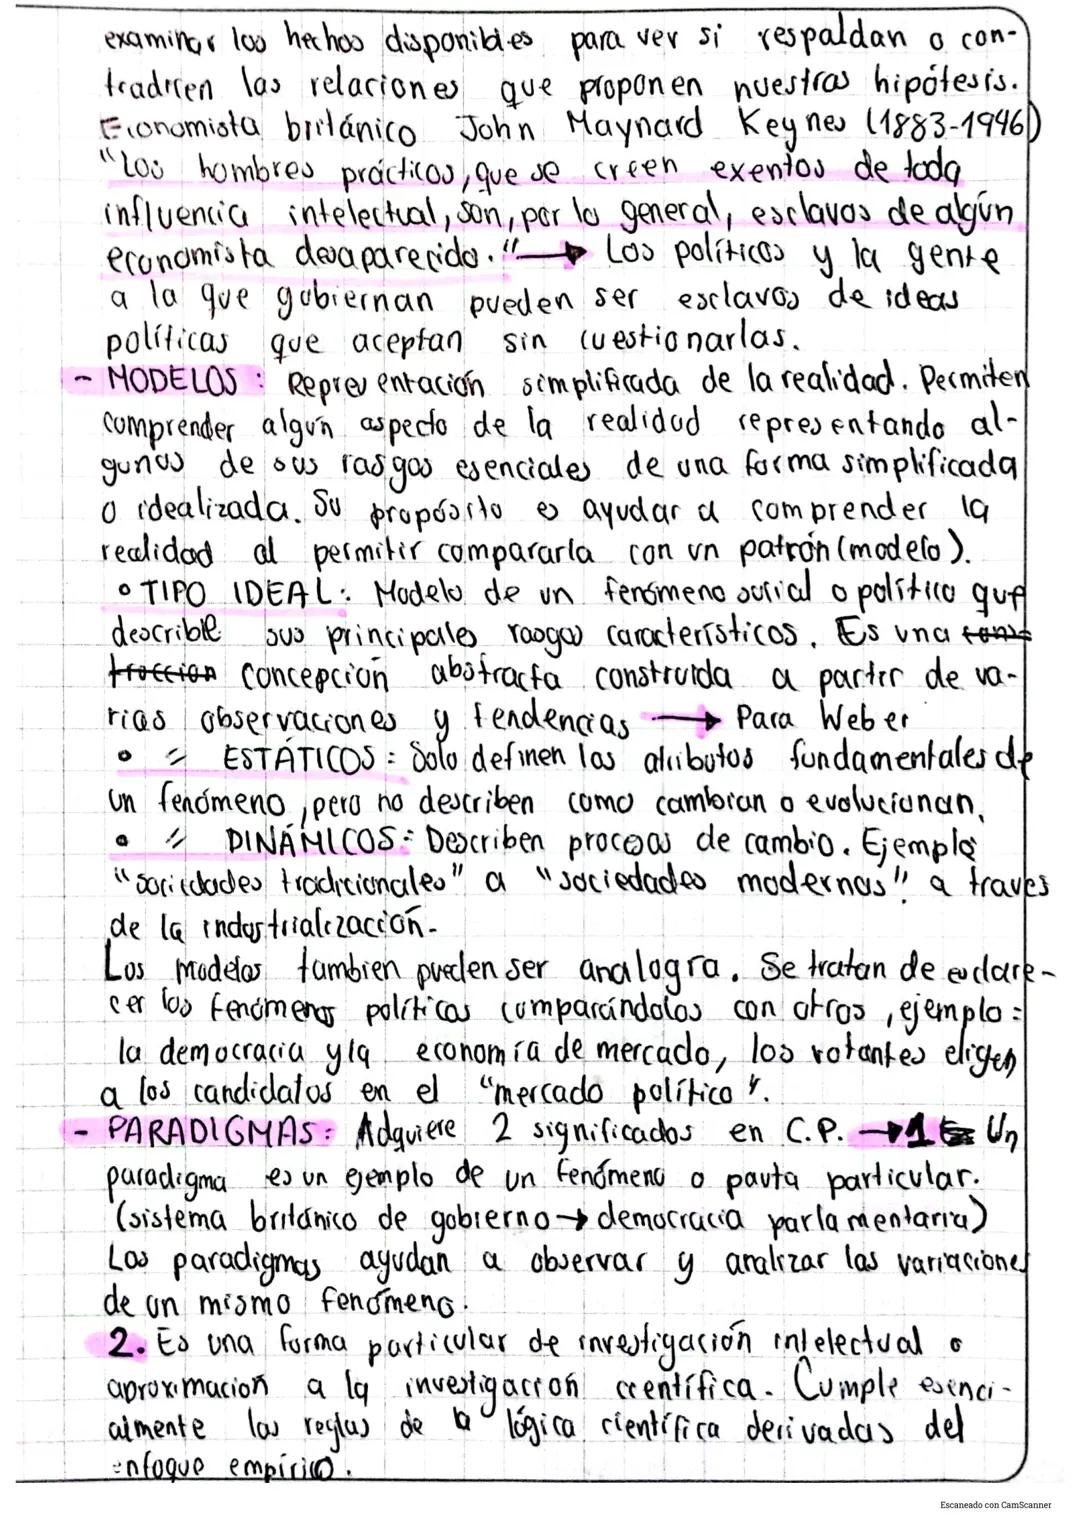 examinar los hechos disponibles para ver si respaldan o con-
tradicen las relaciones que proponen nuestras hipótesis.
Economista británico John Maynard Keynes (1883-1946)
"Los hombres prácticos, que se creen exentos de toda
influencia intelectual, son, por lo general, esclavos de algún
economista desaparecido." → Los políticos y la gente
a la que gobiernan pueden ser esclavos de ideas
políticas que aceptan sin cuestionarlas.
- MODELOS: Representación simplificada de la realidad. Permiten
comprender algún aspecto de la realidad representando al-
gunos de sus rasgos esenciales de una forma simplificada
o idealizada. Su propósito es ayudar a comprender la
realidad al permitir compararla con un patrón (modelo).
• TIPO IDEAL: Modelo de un fenómeno social o político que
describle sus principales rasgos característicos. Es una cons-
trucción concepción abstracta construida a partir de va-
rias observaciones y tendencias → Para Weber
• " ESTÁTICOS: Solo definen los atributos fundamentales de
un fenómeno, pero no describen como cambian o evolucionan.
• " DINÁMICOS: Describen procesos de cambio. Ejemplo
"sociedades tradicionales" a "sociedades modernas" a traves
de la industrialización.
Los modelos tambien pueden ser analogía. Se tratan de esclare-
cer los fenómenos políticos comparándolos con otros, ejemplo:
la democracia y la economía de mercado, los votantes eligen
a los candidatos en el "mercado político".
- PARADIGMAS: Adquiere 2 significados en C.P. → 1 Un
paradigma es un ejemplo de un fenómeno o pauta particular.
(sistema británico de gobierno → democracia parlamentaria)
Los paradigmas ayudan a observar y analizar las variaciones
de un mismo fenómeno.
2. Es una forma particular de investigación intelectual o
aproximación a la investigación científica. Cumple esenci-
almente las reglas de la lógica científica derivadas del
enfoque empírico.
Escaneado con CamScanner